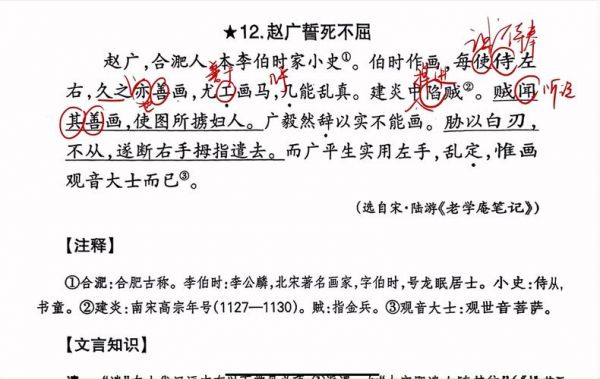 ★12.赵广誓死不屈
赵广,合淝人,本李伯时家小史①。伯时作画,每使侍左
右,久之亦善画,尤工画马,几能乱真。建炎中陷贼②。贼闻
其善画,使图所掳妇人。广毅然辞以实不能画。胁以白刃,
不从,遂断右手拇指遣去。而广平生实用左手,乱定,惟画
观音大士而已③。
(选自宋·陆游《老学庵笔记》)
【注释】
①合淝:合肥古称。李伯时:李公麟,北宋著名画家,字伯时,号龙眠居士。小史:侍从,
书童。②建炎:南宋高宗年号(1127—1130)。贼:指金兵。③观音大士:观世音菩萨。
【文言知识】